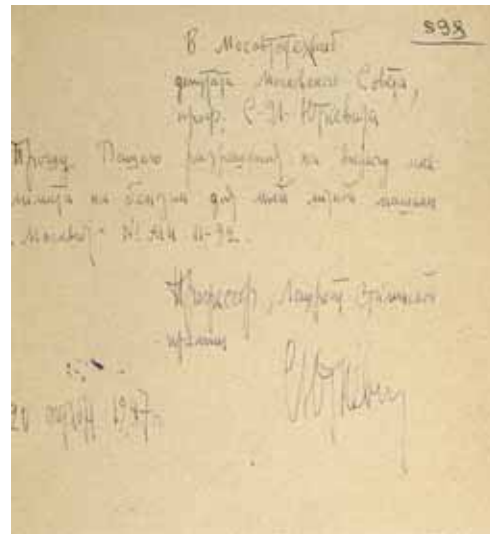 898
В Мосавтотехснаб
депутата Московского Совета,
проф. С. И. Юткевича
Прошу Вашего разрешения на выдачу мне
лимита на бензин для моей личной машины
"Москвич" № 11-92.
Профессор, лауреат Сталинской
премии
С Юткевич
1947 г.